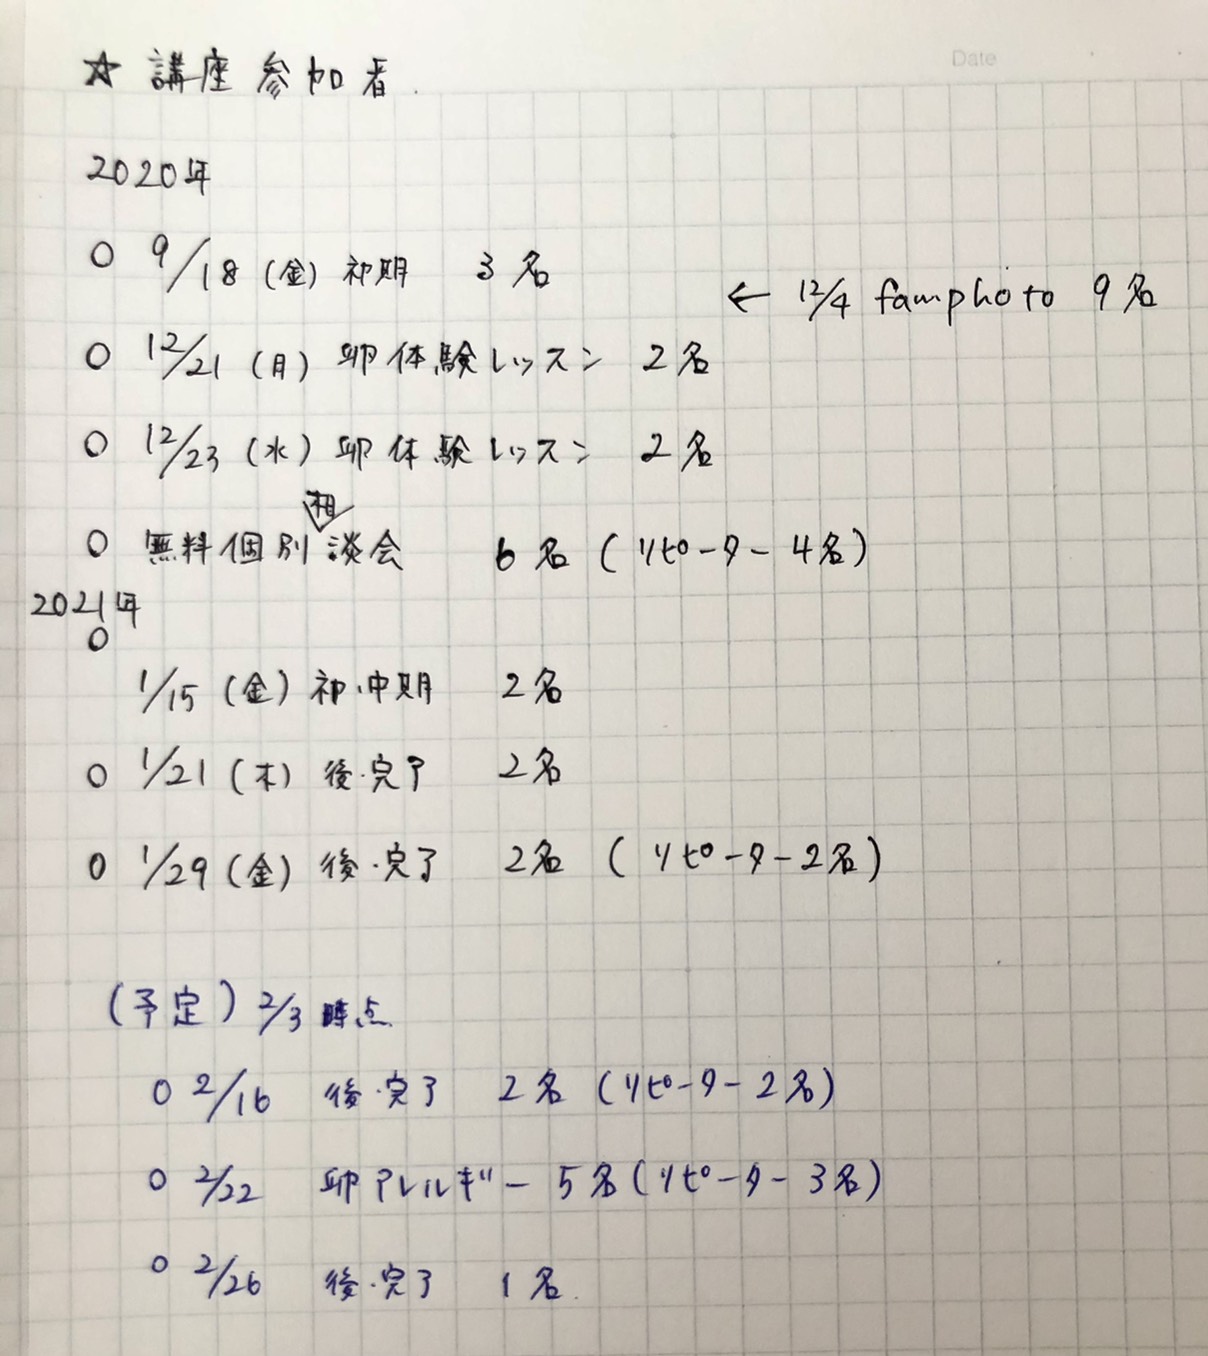 Date
☆ 講座参加者.
2020年
○ 9/18 (金) 初期 3名
← 12/4 famphoto 9名
○ 12/21 (月) 卵体験レッスン 2名
○ 12/23 (水) 卵体験レッスン 2名
○ 無料個別相談会 6名 (リピーター 4名)
2021年
○
1/15 (金) 初・中期 2名
○ 1/21 (木) 後・完了 2名
○ 1/29 (金) 後・完了 2名 (リピーター 2名)
(予定) 2/3 時点
○ 2/16 後・完了 2名 (リピーター 2名)
○ 2/22 卵アレルギー 5名 (リピーター 3名)
○ 2/26 後・完了 1名.